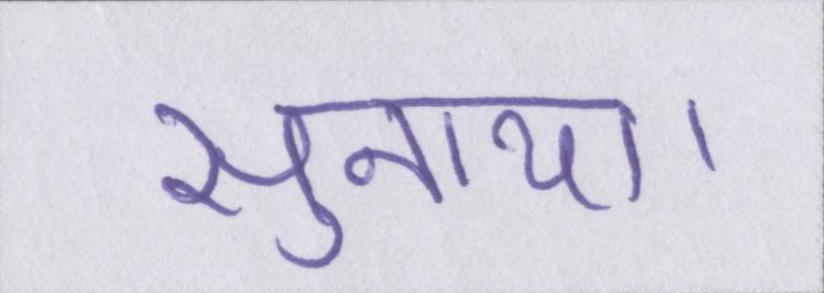 सुनाया।